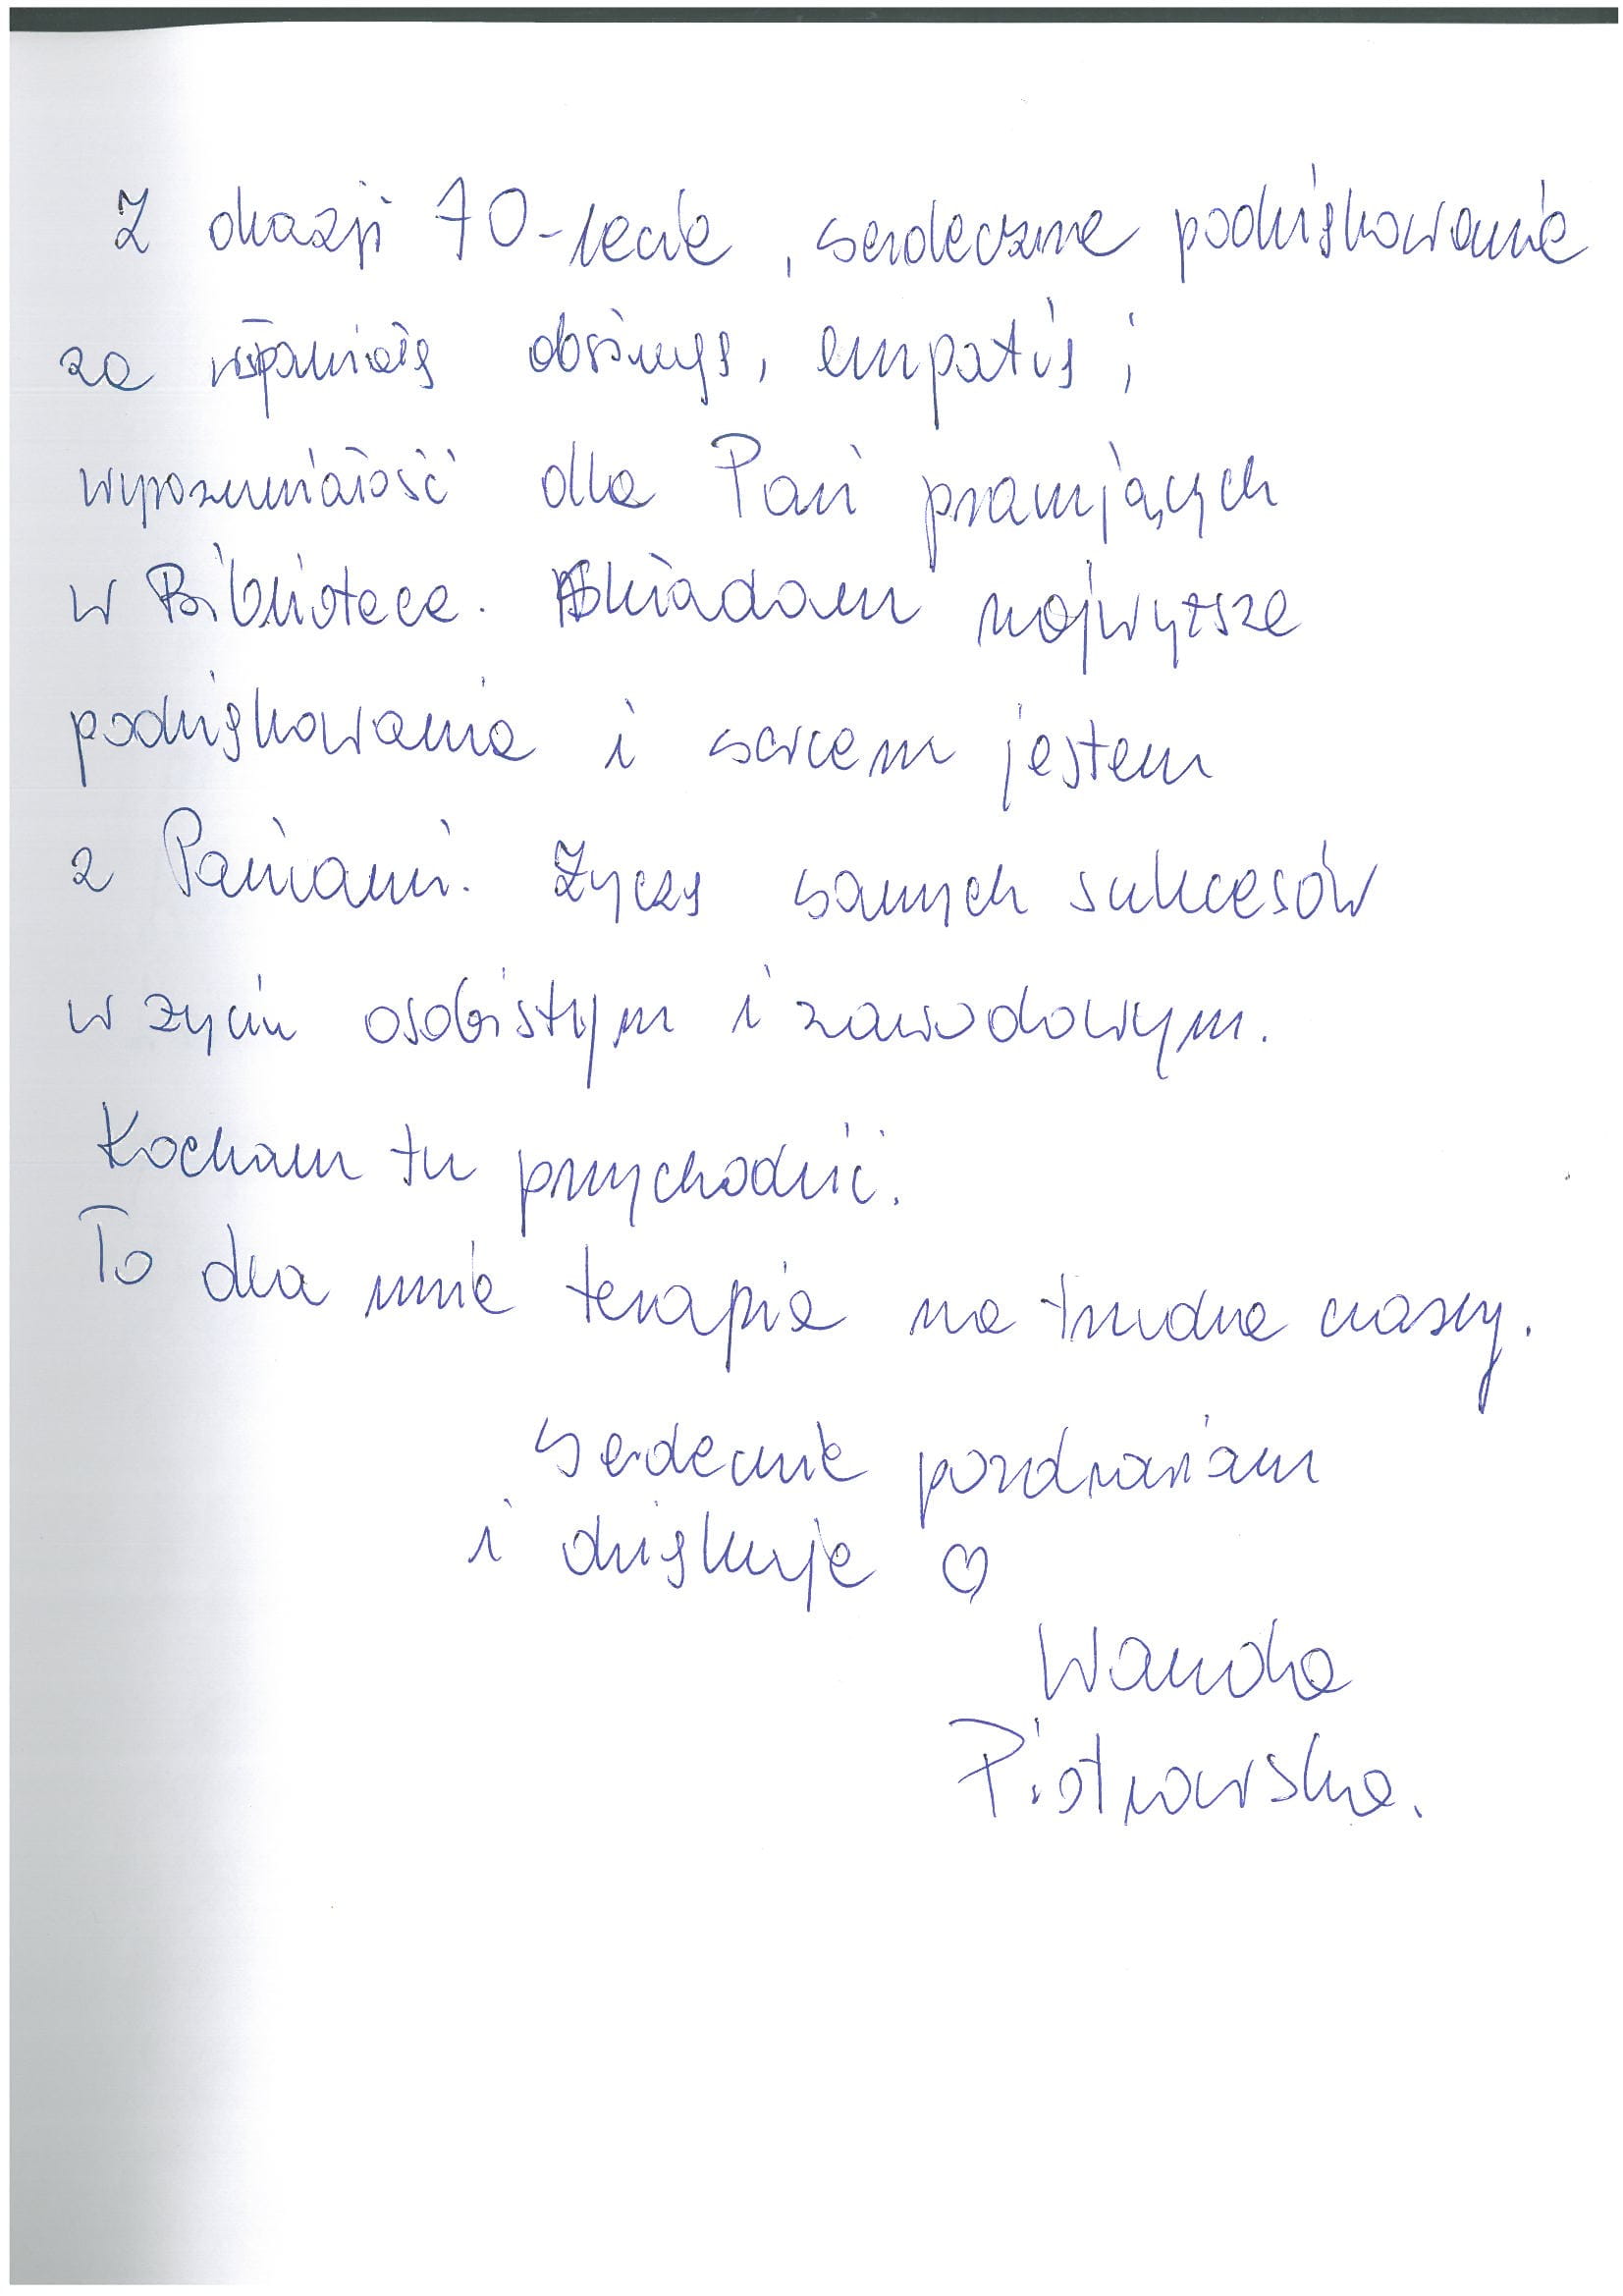 Z okazji 70-lecia, serdeczne podziękowania
za wspaniałą obsługę, empatię i
wyrozumiałość dla Pań pracujących
w Bibliotece. Składam najwyższe
podziękowania i sercem jestem
z Paniami. Życzę samych sukcesów
w życiu osobistym i zawodowym.
Kocham tu przychodzić.
To dla mnie terapia na trudne czasy.
Serdecznie pozdrawiam
i dziękuję ♡
Wanda
Piotrowska.